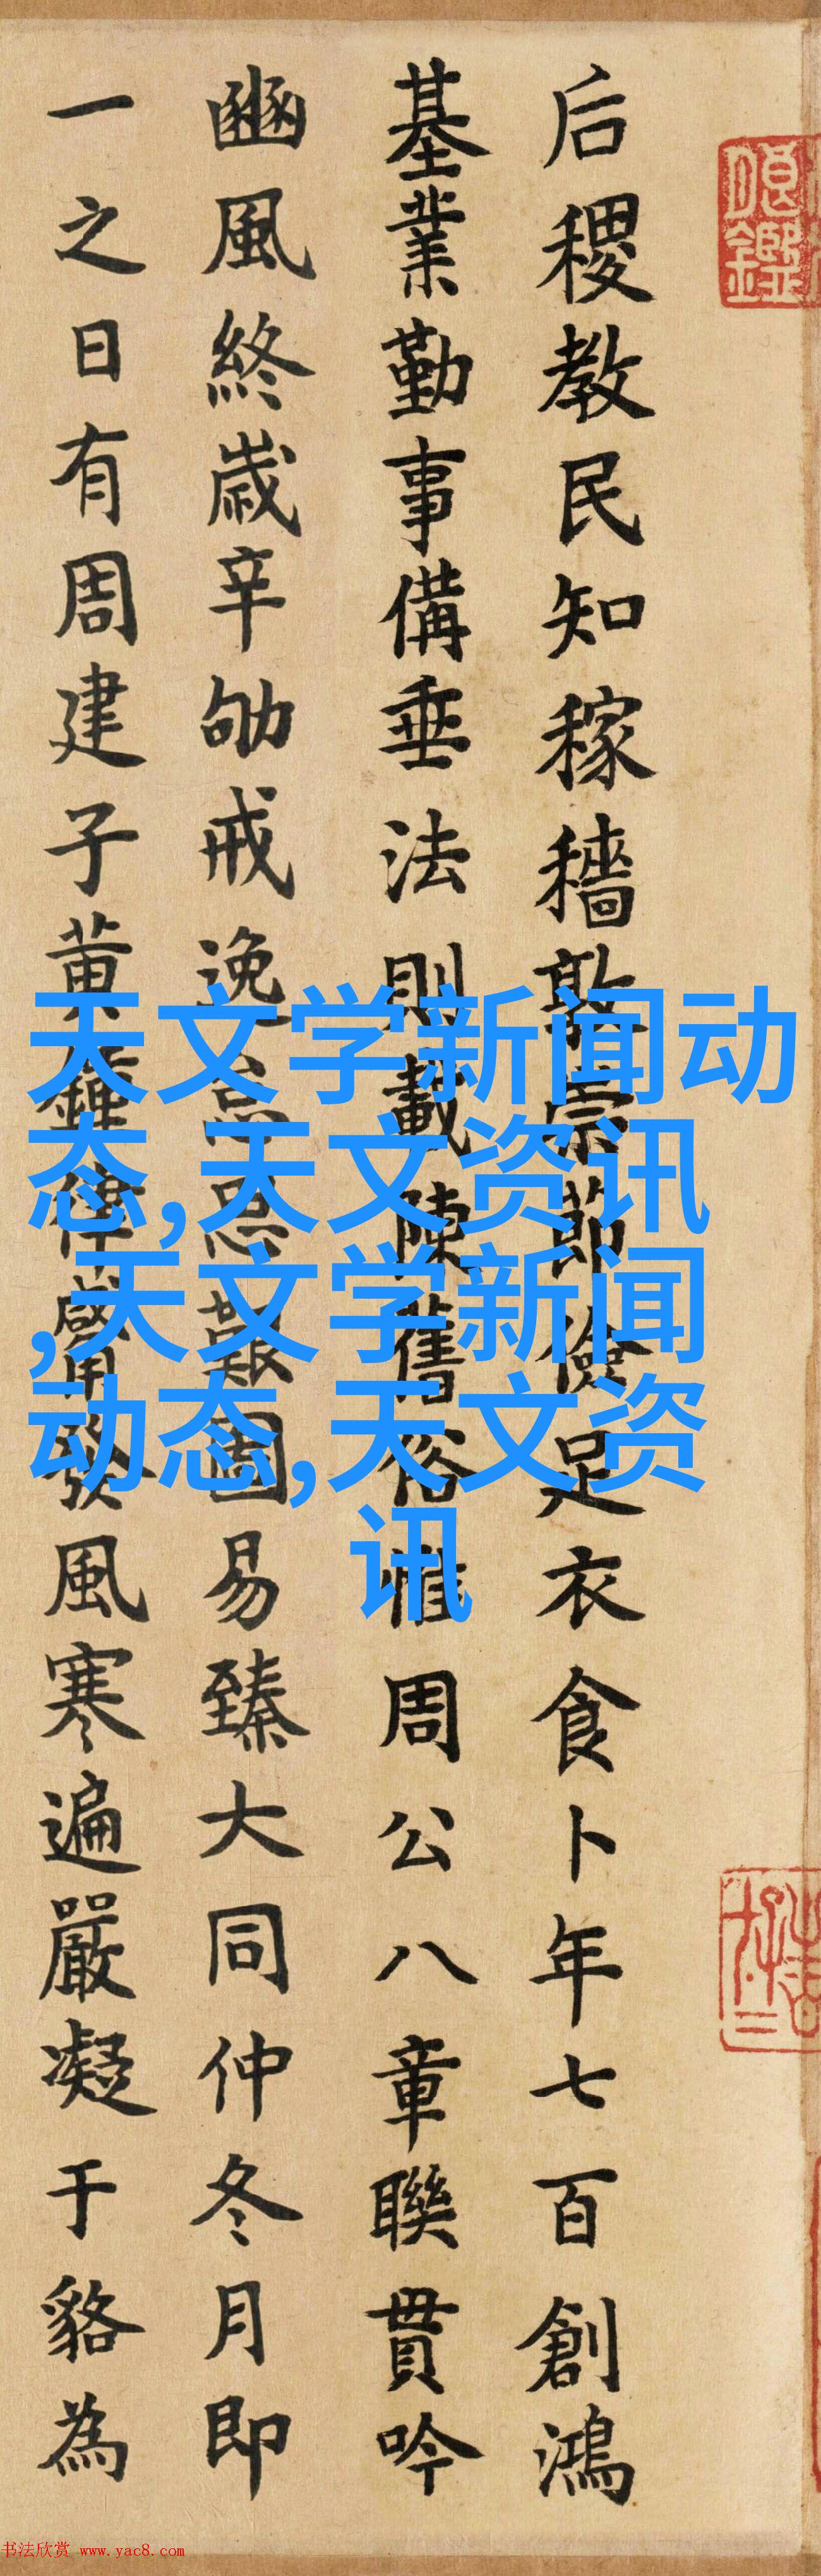 后稷教民知稼穡敦崇節儉足衣食卜年七百創鴻
基業勤事備垂法則載陳舊俗惟周公八章聯貫吟
豳風終歲辛劬戒逸忘艱圖易臻大同仲冬月即
一之日有周建子黄鍾律觱發風寒遍嚴凝于貉為
天文学新闻动
态,天文资讯
,天文学新闻
动态,天文资
讯
书法欣赏 www.yac8.com